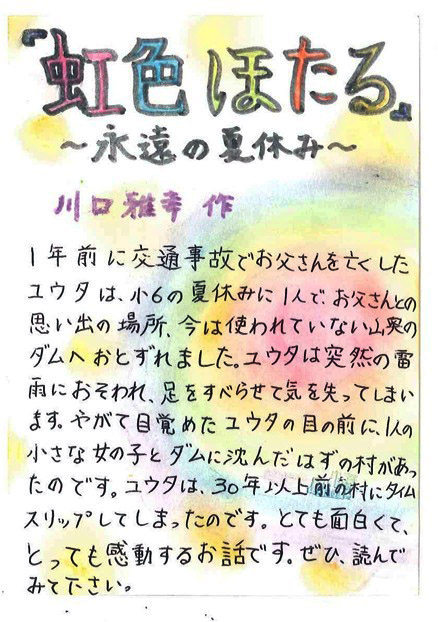 『虹色ほたる』
～永遠の夏休み～
川口雅幸 作
1年前に交通事故でお父さんを亡くした
ユウタは、小6の夏休みに1人でお父さんとの
思い出の場所、今は使われていない山奥の
ダムへおとずれました。ユウタは突然の雷
雨におそわれ、足をすべらせて気を失ってしまい
ます。やがて目覚めたユウタの目の前に、1人の
小さな女の子とダムに沈んだはずの村があっ
たのです。ユウタは、30年以上前の村にタイム
スリップしてしまったのです。とても面白くて、
とっても感動するお話です。ぜひ、読んで
みて下さい。